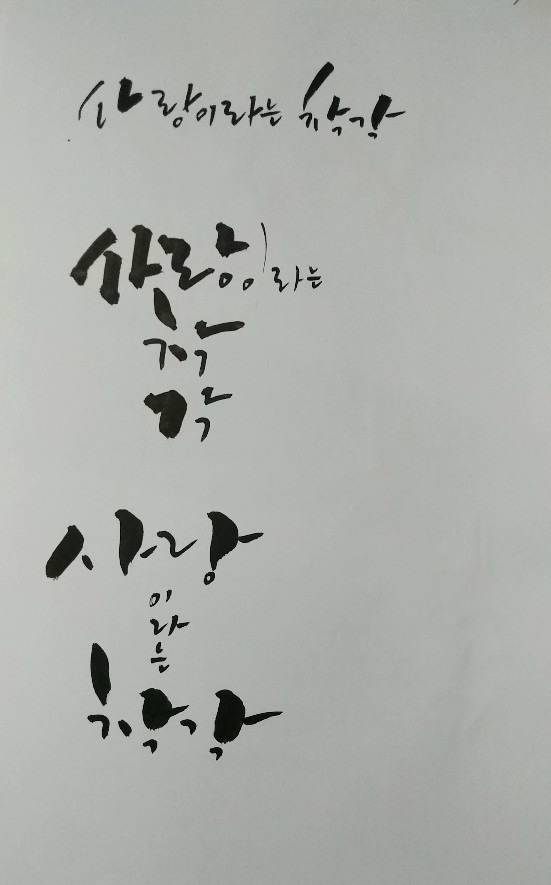 사랑이라는 착각
사랑이라는
착
각
사랑
이
라
는
착각